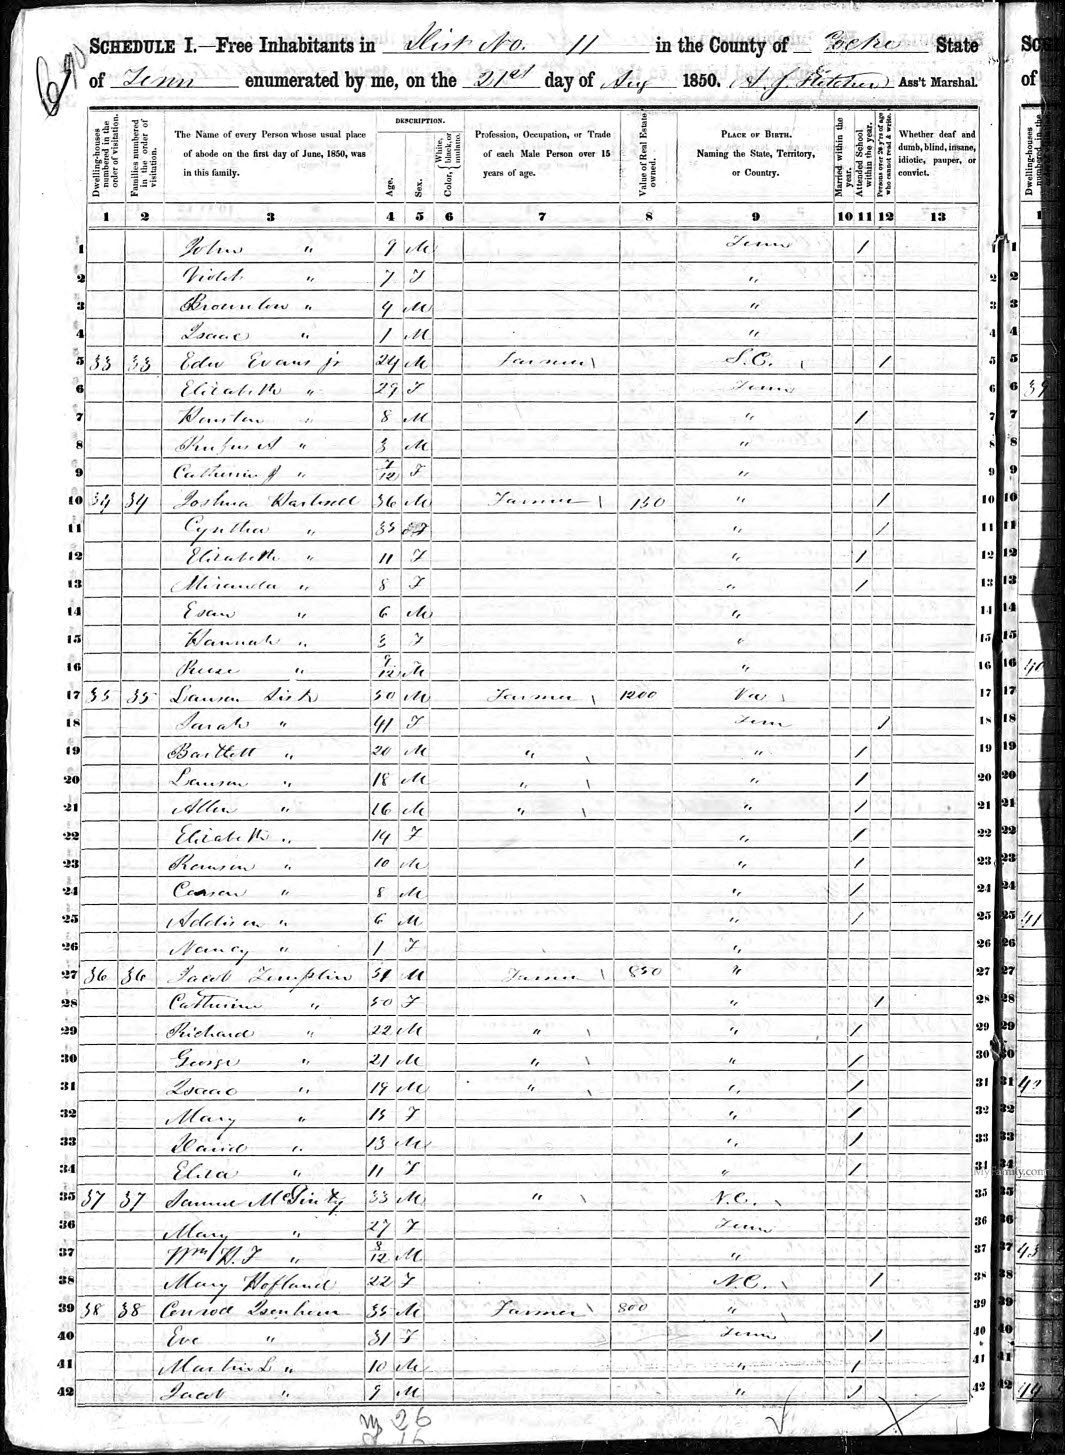 SCHEDULE I.—Free Inhabitants in Dist No. 11 in the County of Cocke State
of Tenn enumerated by me, on the 21st day of Aug 1850. Ass't Marshal.
DESCRIPTION.
Dwelling-houses numbered in the order of visitation.
Families numbered in the order of visitation.
The Name of every Person whose usual place of abode on the first day of June, 1850, was in this family.
Age.
Sex.
Color, { White, black, or mulatto.
Profession, Occupation, or Trade of each Male Person over 15 years of age.
Value of Real Estate owned.
PLACE OF BIRTH. Naming the State, Territory, or Country.
Married within the year.
Attended School within the year.
Persons over 20 y'rs of age who cannot read & write.
Whether deaf and dumb, blind, insane, idiotic, pauper, or convict.
1 2 3 4 5 6 7 8 9 10 11 12 13
1 John " 9 M Tenn 1 1
2 Violet " 7 F " 2
3 Brownlow " 4 M " 3
4 Isaac " 1 M " 4
5 33 33 Edw Evans jr 24 M Farmer S.C. 1 5
6 Elizabeth " 29 F Tenn 6
7 Houston " 8 M " 1 7
8 Rufus A " 3 M " 8
9 Catherine J " 7/12 F " 9
10 34 34 Joshua Hartsell 36 M Farmer 150 " 1 10
11 Cynthia " 35 F " 1 11
12 Elizabeth " 11 F " 1 12
13 Miranda " 8 F " 1 13
14 Esau " 6 M " 14
15 Hannah " 3 F " 15
16 Reese " 9/12 M " 16
17 35 35 Lawson Sisk 50 M Farmer 1200 Va 17
18 Sarah " 41 F Tenn 1 18
19 Bartlett " 20 M " " 1 19
20 Lawson " 18 M " " 1 20
21 Allen " 16 M " " 1 21
22 Elizabeth " 14 F " 1 22
23 Ranson " 10 M " 1 23
24 Carson " 8 M " 1 24
25 Addison " 6 M " 1 25
26 Nancy " 1 F " 26
27 36 36 Jacob Templin 51 M Farmer 850 " 27
28 Catherine " 50 F " 1 28
29 Richard " 22 M " " 1 29
30 George " 21 M " " 1 30
31 Isaac " 19 M " " 1 31
32 Mary " 15 F " 1 32
33 David " 13 M " 1 33
34 Eliza " 11 F " 1 34
35 37 37 Samuel McGinty 33 M " N.C. 35
36 Mary " 27 F Tenn 36
37 Wm H.F " 8/12 M " 37
38 Mary Hofland 22 F N.C. 1 38
39 38 38 Conrod Isenhour 35 M Farmer 800 " 39
40 Eve " 31 F Tenn 1 40
41 Martin L " 10 M " 1 41
42 Jacob " 9 M " 1 42
26
MyFamily.com